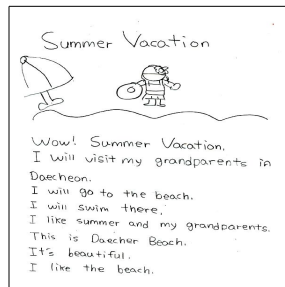 Summer Vacation
Wow! Summer Vacation.
I will visit my grandparents in
Daecheon.
I will go to the beach.
I will swim there.
I like summer and my grandparents.
This is Daecher Beach.
It's beautiful.
I like the beach.